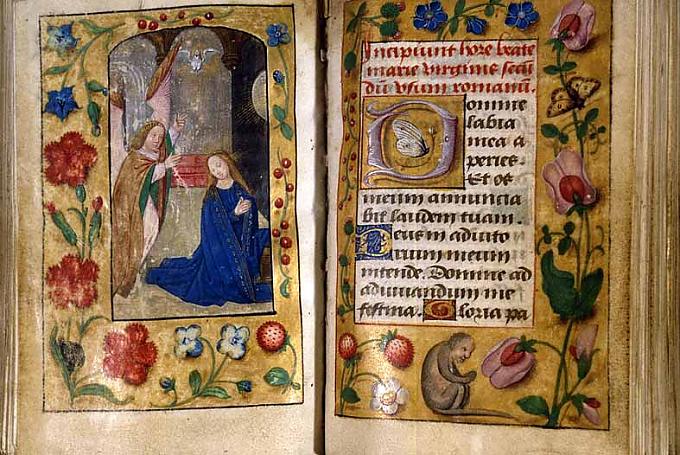 Incipiunt hore beate
marie virginis secū
dū vsum romanū.
Domine
labia
mea a
peries.
Et os
meum annuncia
bit laudem tuam.
Deus in adiuto
rium meum
intende. Domine ad
adiuuandum me
festina. Gloria pa